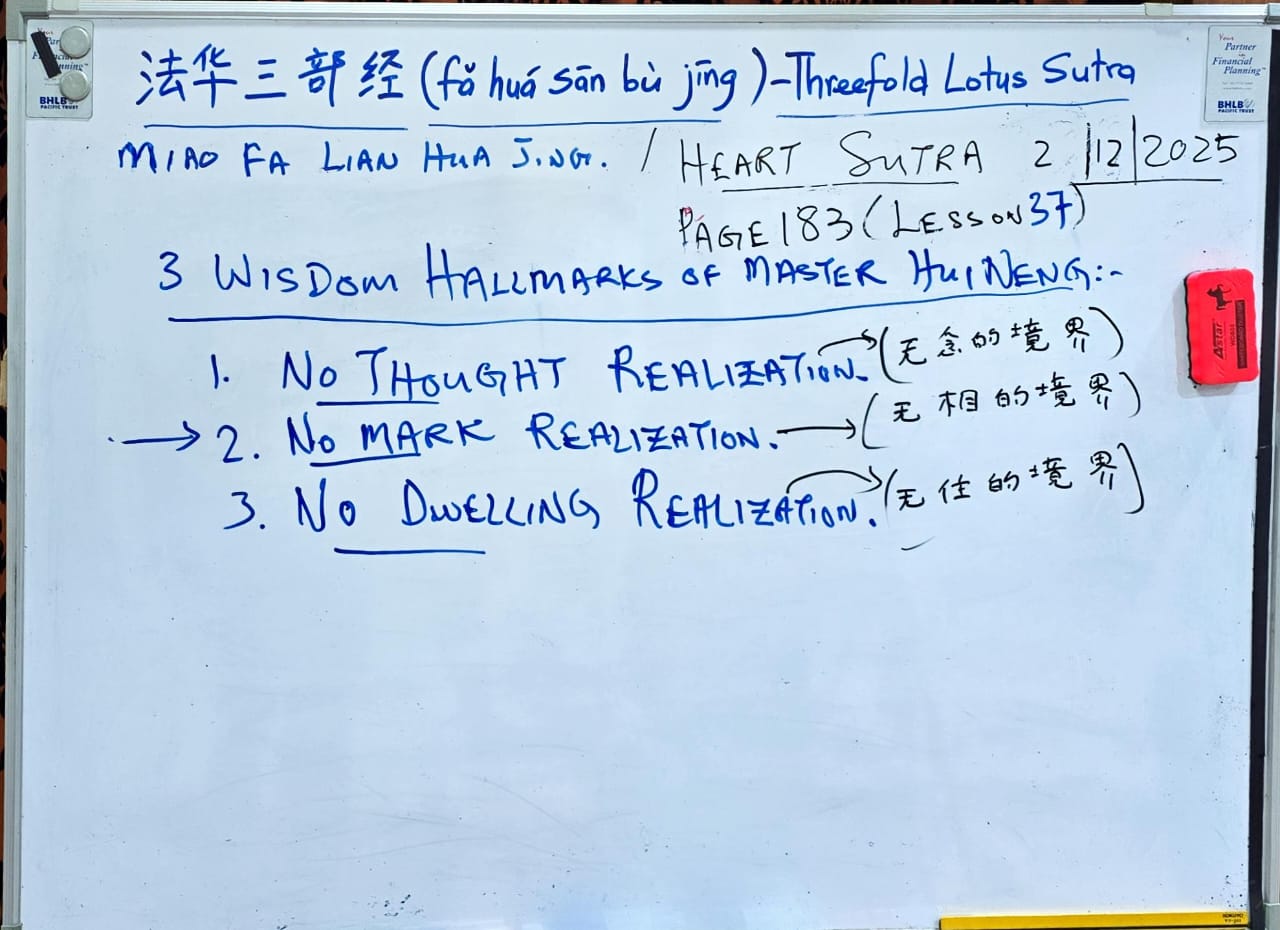 法华三部经 (fǎ huá sān bù jīng) - Threefold Lotus Sutra
MIAO FA LIAN HUA JING. / HEART SUTRA 2/12/2025
PAGE 183 (LESSON 37)
3 WISDOM HALLMARKS OF MASTER HUI NENG:-
1. NO THOUGHT REALIZATION. → (无念的境界)
→ 2. NO MARK REALIZATION. → (无相的境界)
3. NO DWELLING REALIZATION. → (无住的境界)
Your
Partner
in
Financial
Planning™
BHLB
PACIFIC TRUST
BHLB
PACIFIC TRUST
Astar